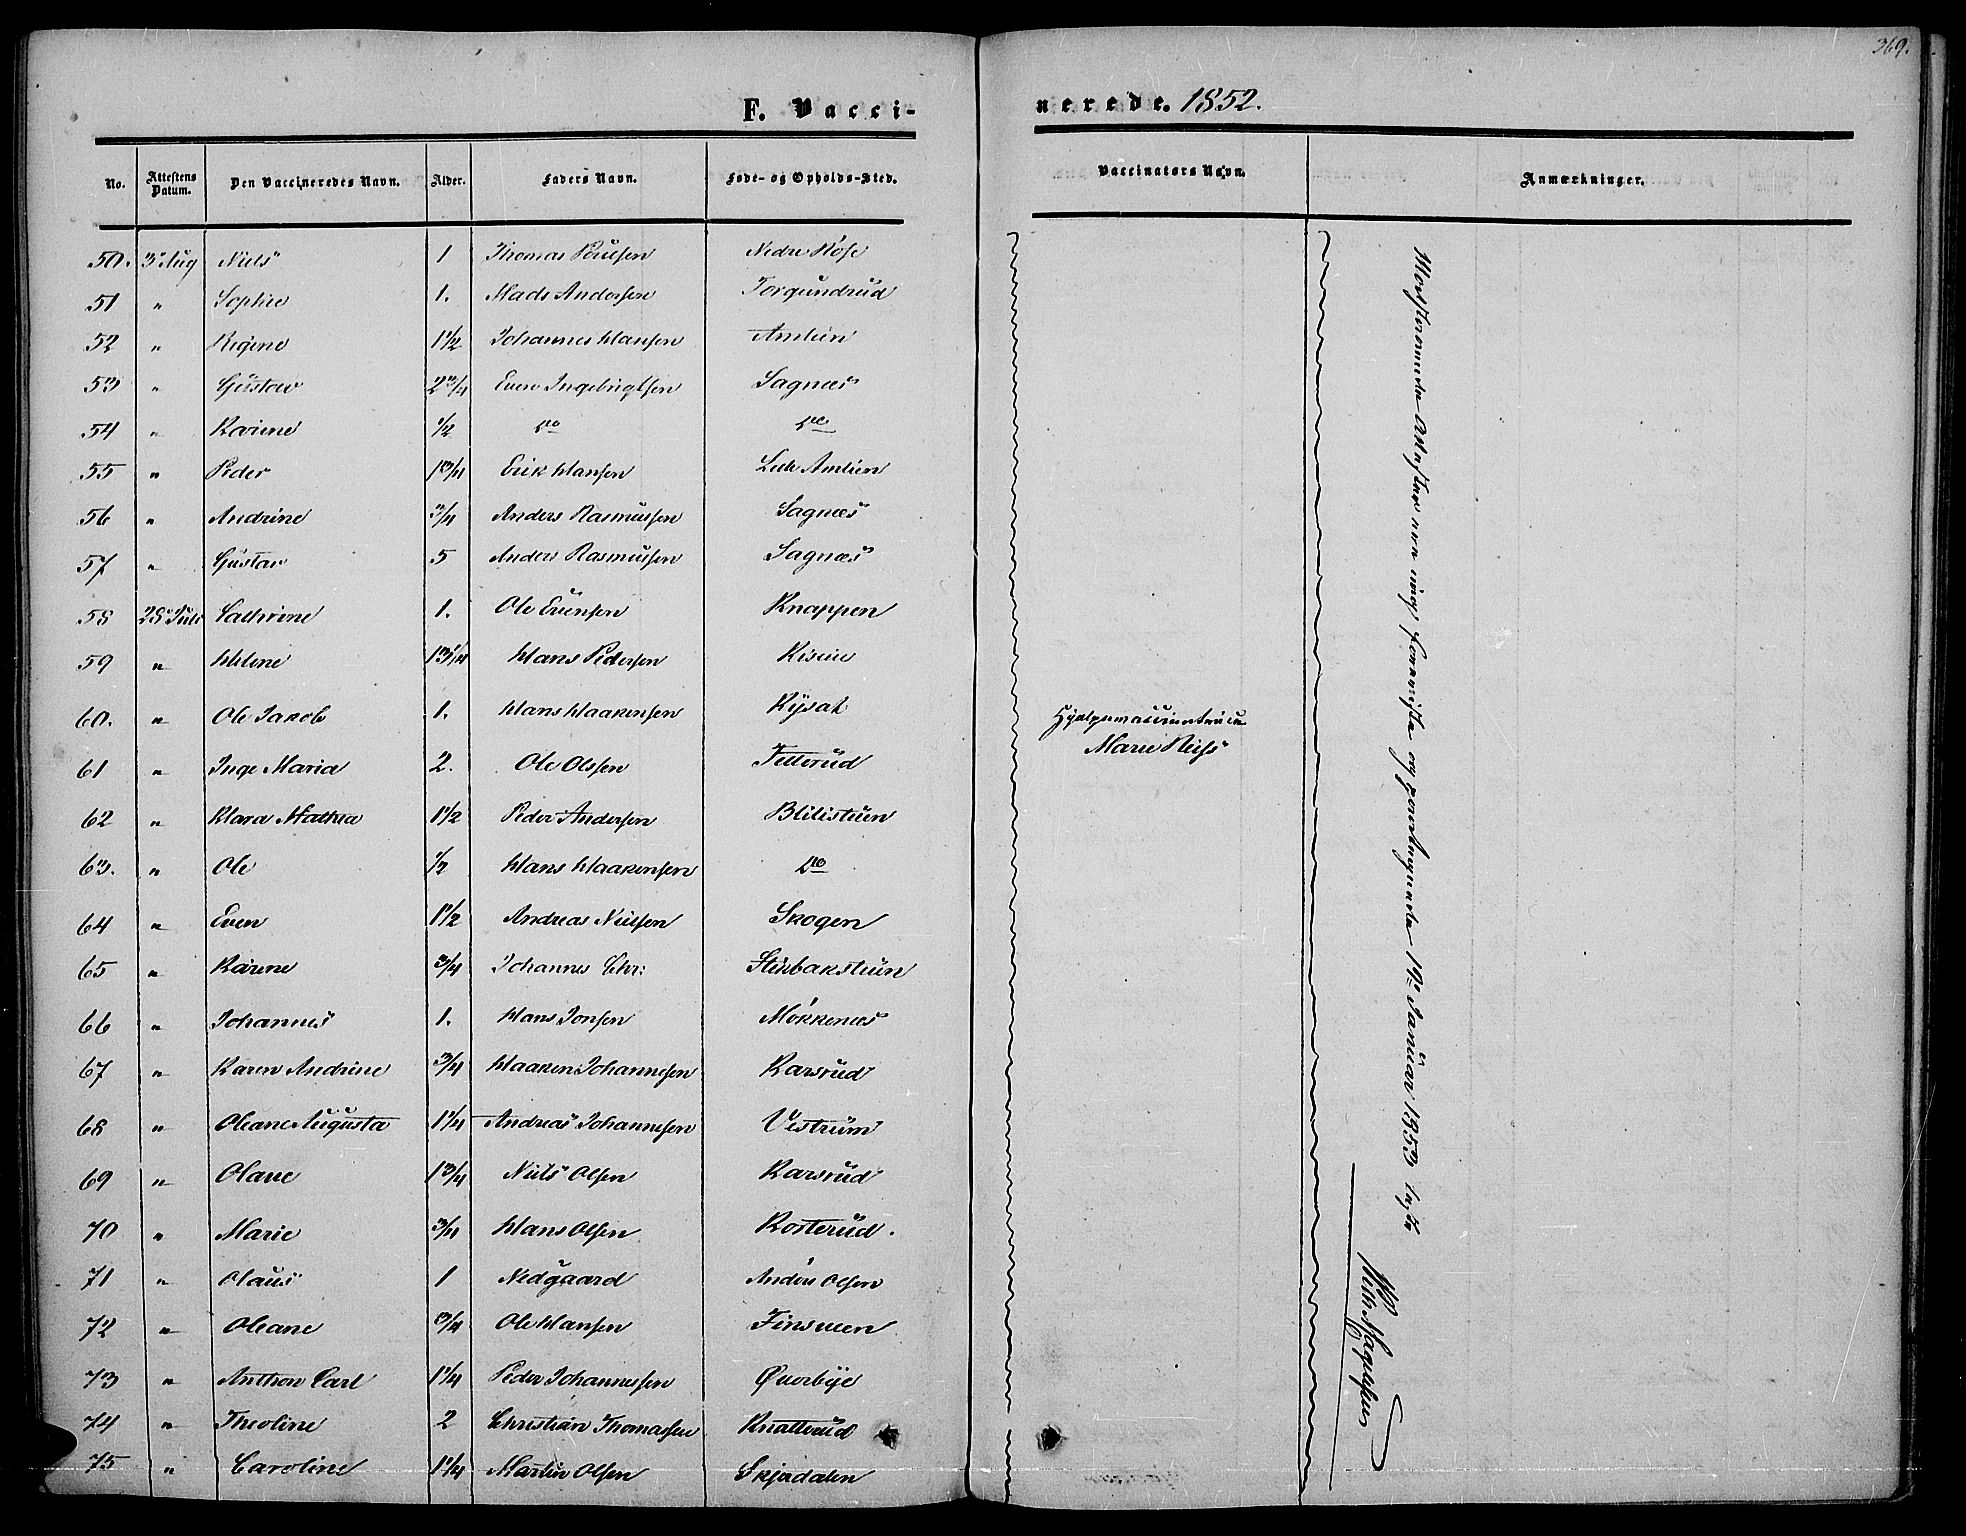 369.
F. Vacci- nerede. 1852.
No. Attestens Datum. Den Vaccineredes Navn. Alder. Faders Navn. Føde- og Opholds-Sted. Vaccinatørs Navn. Anmærkninger.
50. 3 Aug Niels 1 Thomas Poulsen Nedre Kose
51 " Sophie 1. Mads Andersen Torgundrud
52 " Regine 1 1/2 Johannes Hansen Amlien
53 " Gustav 2 3/4 Even Ingebrigtsen Sagnæs
54 " Karine 1/2 do do
55 " Peder 1 3/4 Erik Hansen Amlien
56 " Andrine 3/4 Anders Rasmussen Sagnæs
57 " Gustav 5 Anders Rasmussen Sagnæs
58 28 Juli Cathrine 1. Ole Evensen Knappen
59 " Helene 1 3/4 Hans Pedersen
60. " Ole Jakob 1. Hans Haakensen Rysat
61 " Inge Maria 2. Ole Olsen Fitterud
62 " Klara Mathea 1 1/2 Peder Andersen Blilistuen
63. " Ole 1/2 Hans Haakensen do
64 " Even 1 1/2 Andreas Nielsen Skogen
65 " Karene 3/4 Johannes Chr: Stenbakstuen
66 " Johannes 1. Hans Jonsen Møkkenæs
67 " Karen Andrine 3/4 Haaken Johannesen Karsrud
68 " Oleane Augusta 1 1/4 Andreas Johannesen Vestrum
69 " Olane 1 3/4 Niels Olsen Karsrud
70 " Marie 3/4 Hans Olsen Kosterud.
71 " Olaus 1 Nedgaard Anders Olsen
72 " Oleane 3/4 Ole Hansen Finsveen
73 " Anthon Carl 1 1/4 Peder Johannesen Qvorbye
74 " Theoline 2 Christian Thomassen Knatterud
75 " Caroline 1 1/4 Martin Olsen Skjædalen
Hjelpevaccinatrice
Marie Reiss
Attester ere mig foreviste og 19de Januar 1853